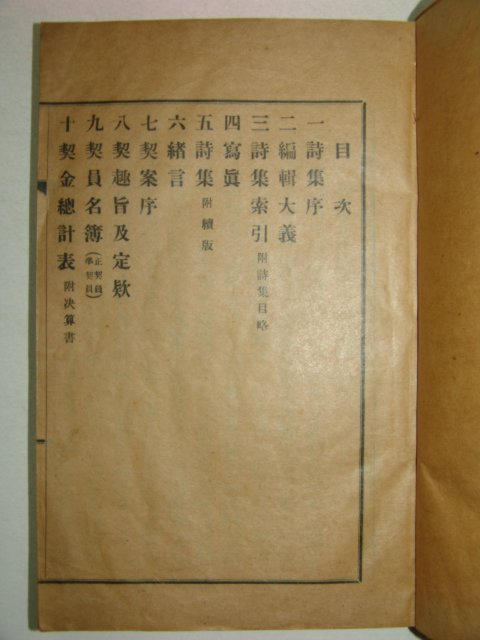 目次
一 詩集序
二 編輯大義
三 詩集索引 附詩集目略
四 寫眞
五 詩集 附續版
六 緖言
七 契案序
八 契趣旨及定欵
九 契員名簿 (正契員 準契員)
十 契金總計表 附決算書